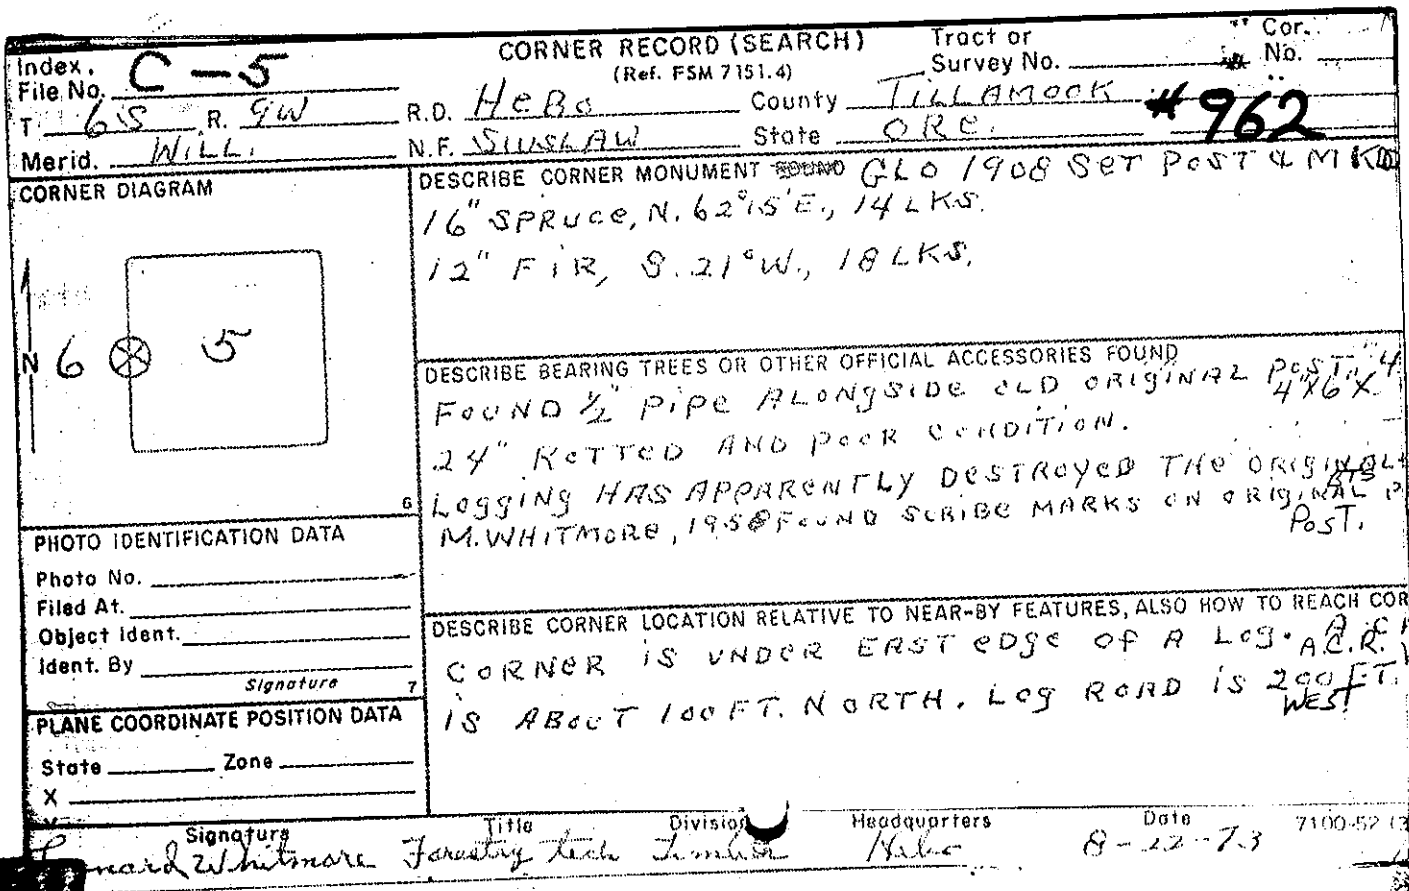 CORNER RECORD (SEARCH)
(Ref. FSM 7151.4)
Tract or
Survey No.
Cor.
No.
Index.
File No. C-5
T. 6S R. 9W R.D. HEBO County TILLAMOOK #962
Merid. WILL. N.F. SIUSLAW State ORE.
CORNER DIAGRAM
N 6 5
6
DESCRIBE CORNER MONUMENT FOUND GLO 1908 SET POST & MKD
16" SPRUCE, N. 62°15'E., 14 LKS.
12" FIR, S. 21°W., 18 LKS.
DESCRIBE BEARING TREES OR OTHER OFFICIAL ACCESSORIES FOUND
FOUND 1/2" PIPE ALONGSIDE OLD ORIGINAL POST. 4"X6"X
24" ROTTED AND POOR CONDITION.
LOGGING HAS APPARENTLY DESTROYED THE ORIGINAL BTS
M. WHITMORE, 1958 FOUND SCRIBE MARKS ON ORIGINAL POST.
PHOTO IDENTIFICATION DATA
Photo No.
Filed At.
Object Ident.
Ident. By
Signature 7
DESCRIBE CORNER LOCATION RELATIVE TO NEAR-BY FEATURES, ALSO HOW TO REACH COR
CORNER IS UNDER EAST EDGE OF A LOG. A.C.R.
IS ABOUT 100 FT. NORTH. LOG ROAD IS 200 FT.
WEST
PLANE COORDINATE POSITION DATA
State Zone
X
Y
Signature Title Division Headquarters Date 7100-52
Whitmore Forestry Tech Timber Hebo 8-22-73